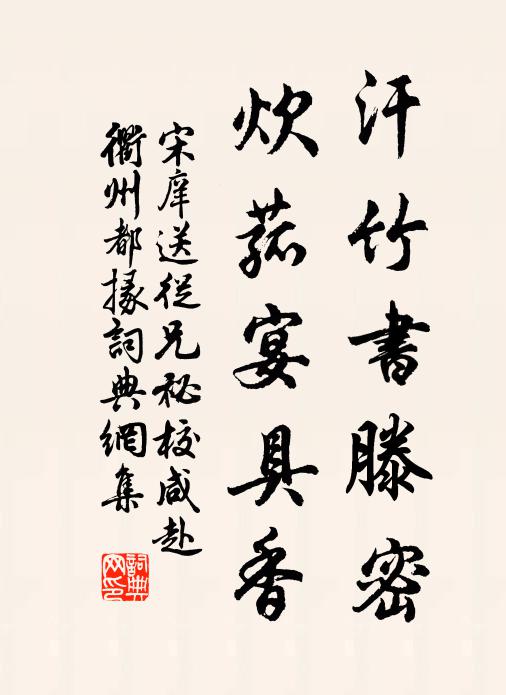 汗竹書滕密
炊菰宴具香
宋庠送從兄祕校咸赴
衢州都掾詞典網集
詞典
网印